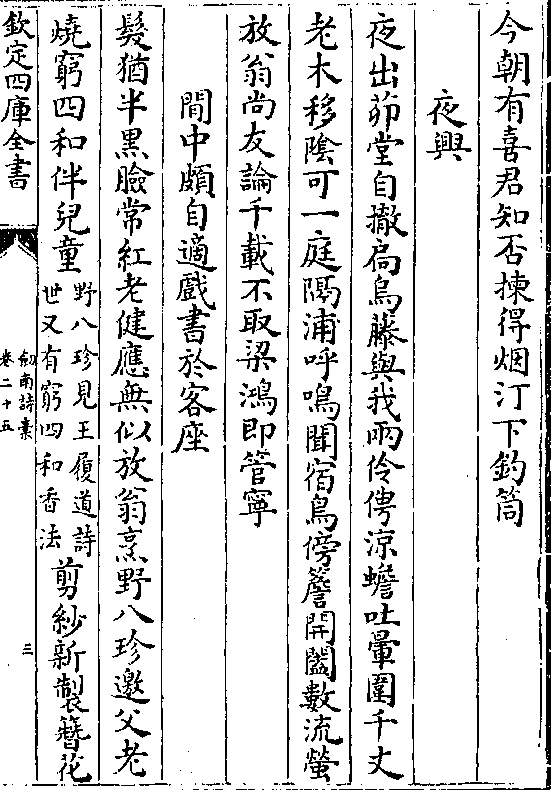 今朝有喜君知否揀得烟汀下釣筒
夜興
夜出茆堂自撤扃烏藤與我兩伶俜涼蟾吐暈圍千丈
老木移陰可一庭隔浦呼鳴聞宿鳥傍簷開闔數流螢
放翁尚友論千載不取梁鴻即管寧
閒中頗自適戲書於客座
髮猶半黑臉常紅老健應無似放翁烹野八珍邀父老
燒窮四和伴兒童野八珍見王履道詩世又有窮四和香法剪紗新製簪花
欽定四庫全書
劔南詩稾
卷二十五
三